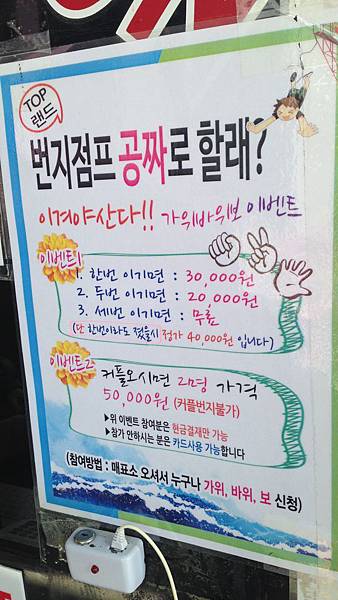 TOP
랜드
번지점프 공짜로 할래?
이겨야산다!! 가위바위보 이벤트
이벤트1
1. 한번 이기면 : 30,000원
2. 두번 이기면 : 20,000원
3. 세번 이기면 : 무료
(단 한번이라도 졌을시 정가 40,000원 입니다)
이벤트2
커플오시면 2명 가격
50,000원 (커플번지불가)
▶위 이벤트 참여분은 현금결제만 가능
▶참가 안하시는 분은 카드사용 가능합니다
(참여방법 : 매표소 오셔서 누구나 가위, 바위, 보 신청)